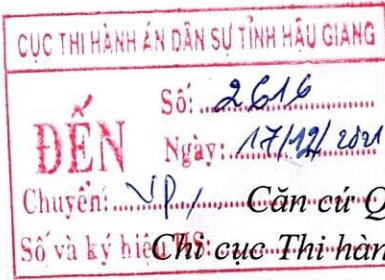 CỤC THI HÀNH ÁN DÂN SỰ TỈNH HẬU GIANG
ĐẾN
Số: 2616
Ngày: 17/12/2021
Chuyển: VP,
Căn cứ Q
Số và ký hiệu HS:
Chi cục Thi hàn